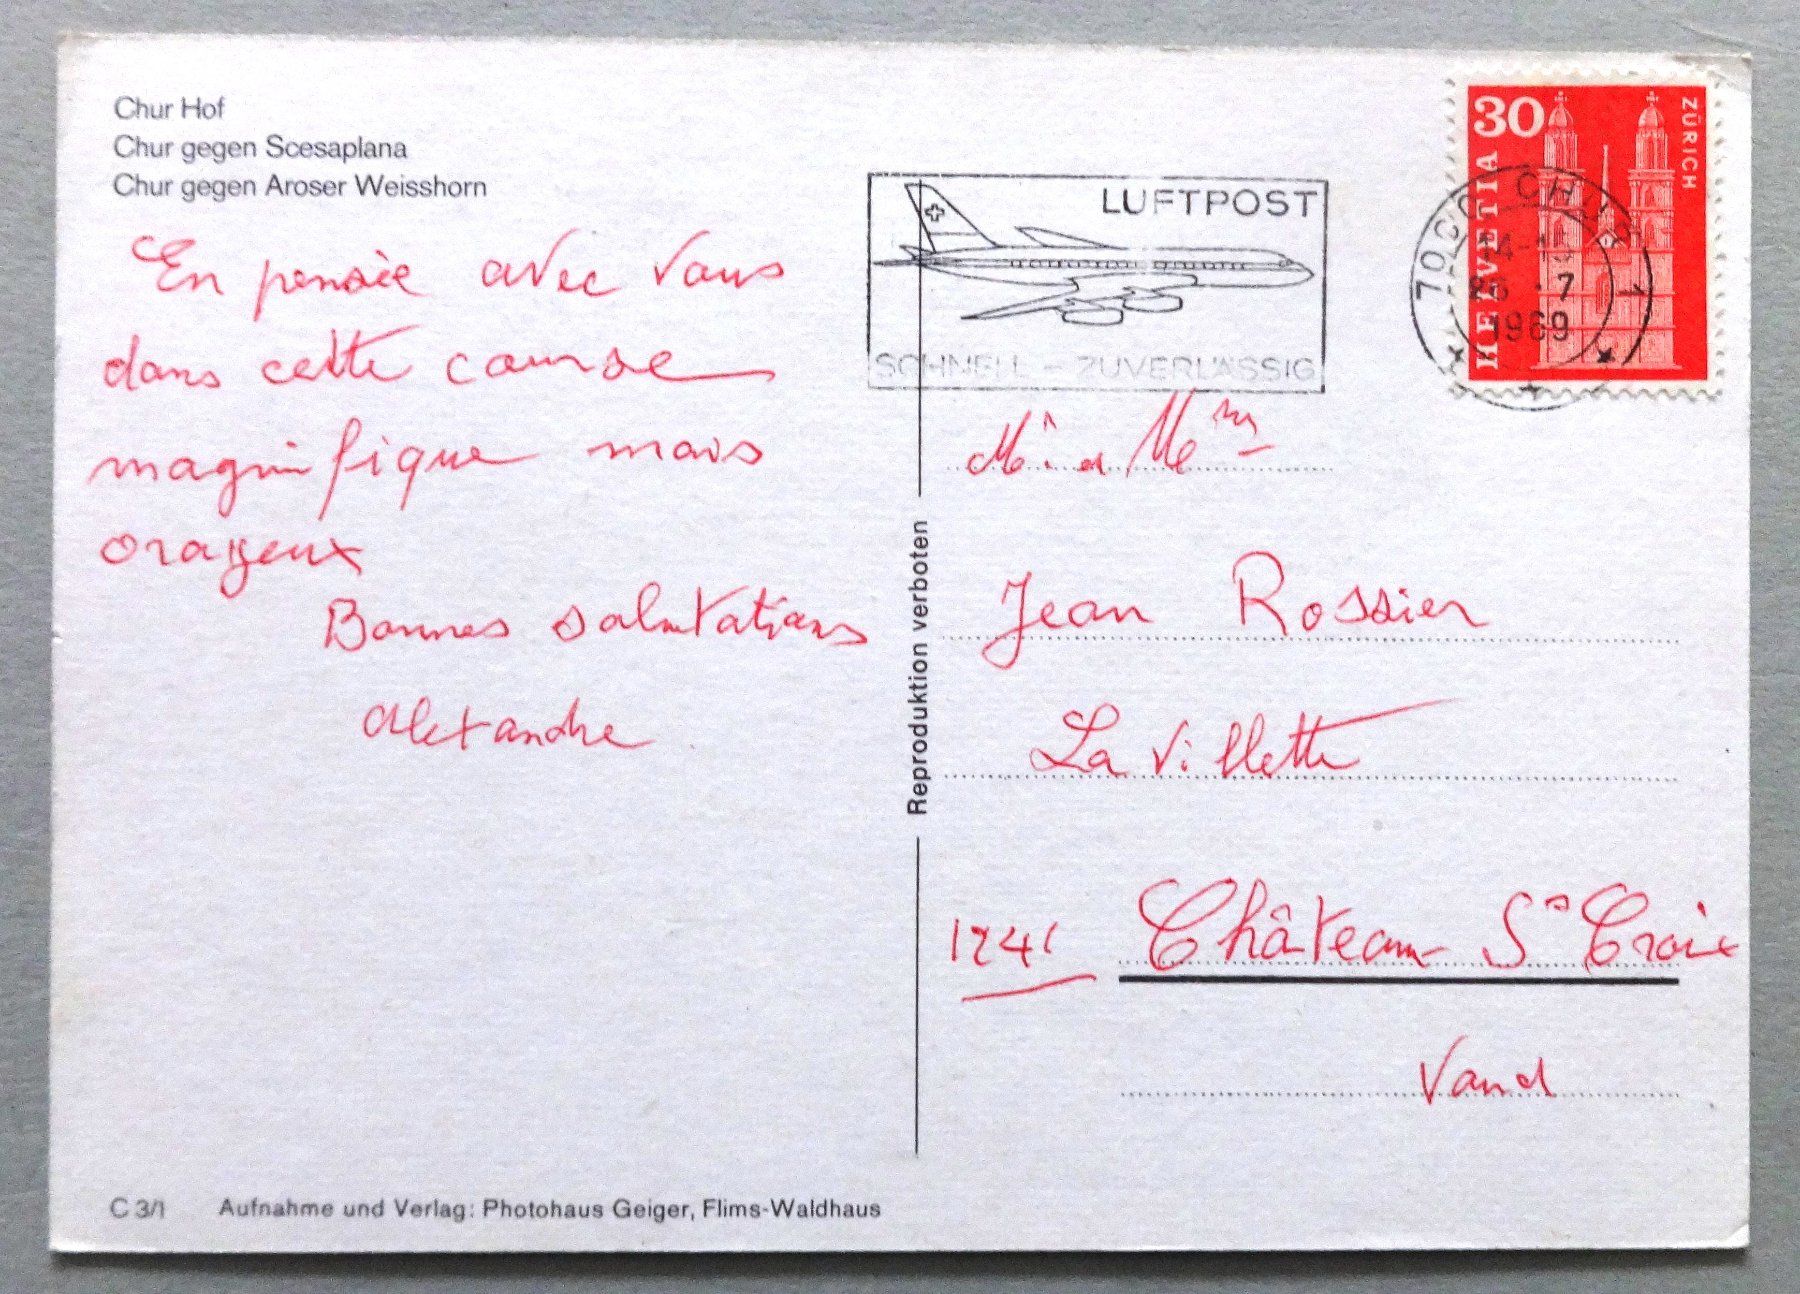 Chur Hof
Chur gegen Scesaplana
Chur gegen Aroser Weisshorn
En pensée avec vous
dans cette course
magnifique mais
orageux
Bonnes salutations
Alexandre
C 3/1 Aufnahme und Verlag: Photohaus Geiger, Flims-Waldhaus
Reproduktion verboten
LUFTPOST
SCHNELL - ZUVERLÄSSIG
30
HELVETIA
ZÜRICH
7000 CHUR 1
14-15
26 -7
1969
Jean Rossier
La Villette
Château-
Croix
Vaud